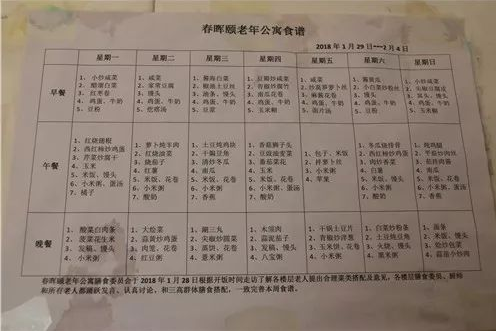 春晖颐老年公寓食谱
2018年1月29日---2月4日
星期一 星期二 星期三 星期四 星期五 星期六 星期日
早餐
1、小炒咸菜 1、咸菜 1、酱海白菜 1、豆瓣炒咸菜 1、咸菜 1、酱黄瓜 1、小炒咸菜
2、醋溜白菜 2、家常豆腐 2、醋油土豆丝 2、青椒炒腐竹 2、炒莴笋萝卜丝 2、小白菜炒粉丝
3、红枣花卷 3、馒头 3、油条、馒头 3、南瓜花卷 3、麻酱花卷 3、馒头
4、鸡蛋、牛奶 4、鸡蛋、牛奶 4、鸡蛋、牛奶 4、鸡蛋、牛奶 4、鸡蛋、牛奶 4、鸡蛋、牛奶 4、鸡蛋、牛奶
5、豆粉 5、疙瘩汤 5、豆浆 5、玉米糊 5、面片汤 5、玉米糊
午餐
1、红烧翅根 1、萝卜炖羊肉 1、土豆炖鸡块 1、香菇狮子头 1、包子、米饭 1、冬瓜烧排骨 1、炖鸡腿
2、西红柿炒鸡蛋 2、红烧油菜 2、干煸豆角 2、豆瓣油麦菜 2、拌萝卜丝 2、西红柿炒鸡蛋
3、芹菜炒腐干 3、烧茄子 3、清炒冬瓜 3、番茄花菜 3、小米粥 3、肉炒香菜
4、玉米 4、红薯 4、南瓜 4、玉米 4、苹果 4、红薯
5、米饭、馒头 5、米饭、花卷 5、米饭、馒头 5、米饭、花卷 5、米饭、馒头 5、米饭、花卷
6、小米粥、蛋汤 6、小米粥 6、小米粥 6、小米粥 6、小米粥、蛋汤 6、小米粥
7、橘子 7、酸奶 7、香蕉 7、酸奶 7、香蕉 7、酸奶
晚餐
1、酸菜白肉条 1、大烩菜 1、涮三丸 1、木须肉 1、干锅土豆片 1、白菜炒粉条 1、面条
2、菠菜花生米 2、蒜黄炒鸡蛋 2、尖椒炒圆菜 2、蒜泥茄子 2、青椒炒洋葱 2、土豆炖豆角 2、馒头
3、发糕、馒头 3、肉笼、花卷 3、蒸饼、花卷 3、发糕、馒头 3、玉米、花卷 3、火烧、馒头 3、炒合包菜
4、小米粥 4、红豆粥 4、薏米粥 4、八宝粥 4、小米粥 4、黑米粥 4、蛋油小炒肉
春晖颐老年公寓膳食委员会于2018年1月28日根据开饭时间走访了解各楼层老人提出合理菜类搭配及意见，各楼层膳食委员、厨师
和所有老人都踊跃发言、认真讨论、和三高群体膳食搭配，一致完善本周食谱。